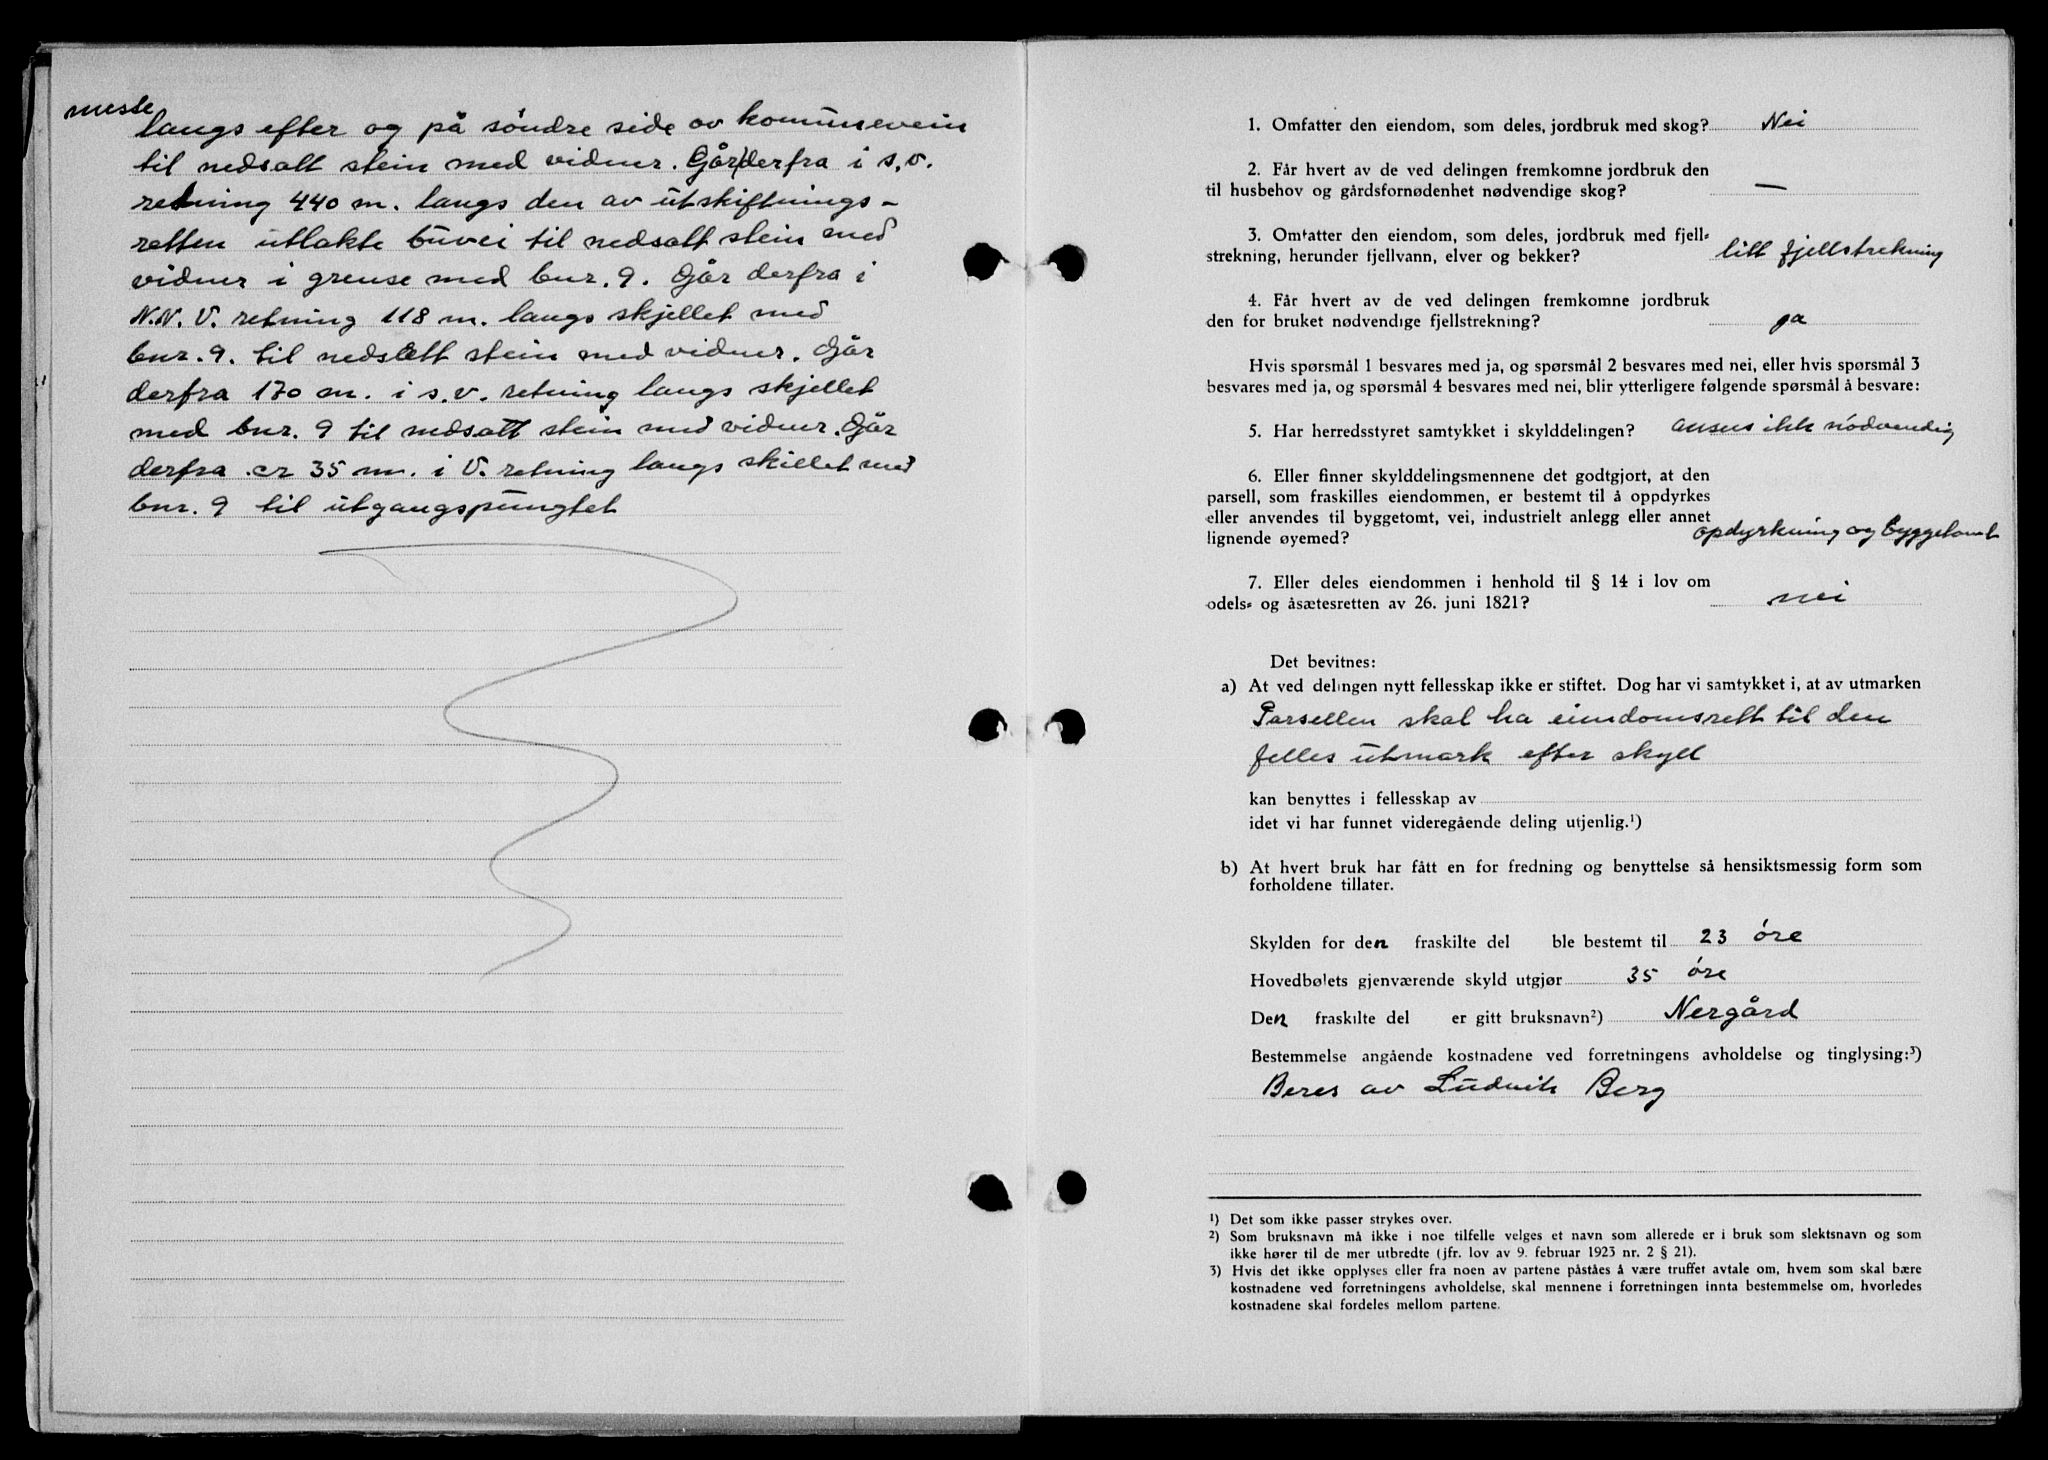 meste
langs efter og på söndre side av kommunevein
til nedsatt stein med vidner. Går derfra i s.v.
retning 440 m. langs den av utskiftnings-
retten utlakte buvei til nedsatt stein med
vidner i grense med bnr. 9. Går derfra i
N.N.V. retning 118 m. langs skjellet med
bnr. 9. til nedsett stein med vidner. Går
derfra 170 m. i s.v. retning langs skjellet
med bnr. 9 til nedsatt stein med vidner. Går
derfra cr 35 m. i V. retning langs skillet med
bnr. 9 til utgangspungtet
1. Omfatter den eiendom, som deles, jordbruk med skog? Nei
2. Får hvert av de ved delingen fremkomne jordbruk den
til husbehov og gårdsfornødenhet nødvendige skog? —
3. Omfatter den eiendom, som deles, jordbruk med fjell-
strekning, herunder fjellvann, elver og bekker? litt fjellstrekning
4. Får hvert av de ved delingen fremkomne jordbruk
den for bruket nødvendige fjellstrekning? ja
Hvis spørsmål 1 besvares med ja, og spørsmål 2 besvares med nei, eller hvis spørsmål 3
besvares med ja, og spørsmål 4 besvares med nei, blir ytterligere følgende spørsmål å besvare:
5. Har herredsstyret samtykket i skylddelingen? anses ikk nödvendig
6. Eller finner skylddelingsmennene det godtgjort, at den
parsell, som fraskilles eiendommen, er bestemt til å oppdyrkes
eller anvendes til byggetomt, vei, industrielt anlegg eller annet
lignende øyemed? opdyrkning og byggetomt
7. Eller deles eiendommen i henhold til § 14 i lov om
odels- og åsætesretten av 26. juni 1821? nei
Det bevitnes:
a) At ved delingen nytt fellesskap ikke er stiftet. Dog har vi samtykket i, at av utmarken
Parsellen skal ha eiendomsrett til den
felles utmark efter skyll
kan benyttes i fellesskap av
idet vi har funnet videregående deling utjenlig.¹)
b) At hvert bruk har fått en for fredning og benyttelse så hensiktsmessig form som
forholdene tillater.
Skylden for den fraskilte del ble bestemt til 23 öre
Hovedbølets gjenværende skyld utgjør 35 öre
Den fraskilte del er gitt bruksnavn²) Nergård
Bestemmelse angående kostnadene ved forretningens avholdelse og tinglysing:³)
Beres av Ludvik Berg
¹) Det som ikke passer strykes over.
²) Som bruksnavn må ikke i noe tilfelle velges et navn som allerede er i bruk som slektsnavn og som
ikke hører til de mer utbredte (jfr. lov av 9. februar 1923 nr. 2 § 21).
³) Hvis det ikke opplyses eller fra noen av partene påståes å være truffet avtale om, hvem som skal bære
kostnadene ved forretningens avholdelse, skal mennene i forretningen innta bestemmelse om, hvorledes
kostnadene skal fordeles mellom partene.